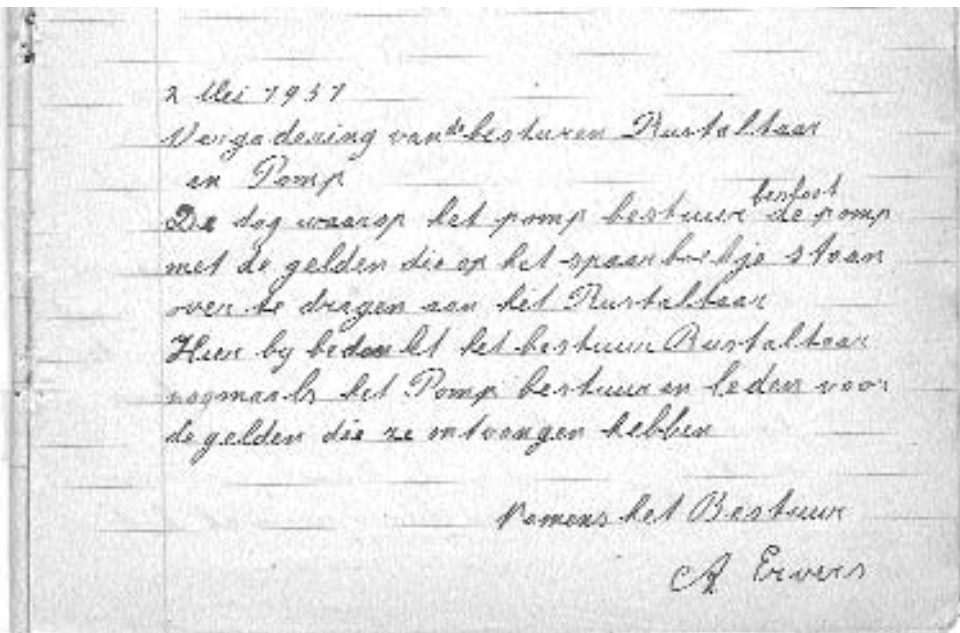 2 Mei 1937
Vergadering van de besturen Rustaltaar
en Pomp
De dag waarop het pomp bestuur besloot de pomp
met de gelden die op het spaarboekje staan
over te dragen aan het Rustaltaar
Hier by bedankt het bestuur Rustaltaar
nogmaals het Pomp bestuur en leden voor
de gelden die ze ontvangen hebben
Namens het Bestuur
A Ervers